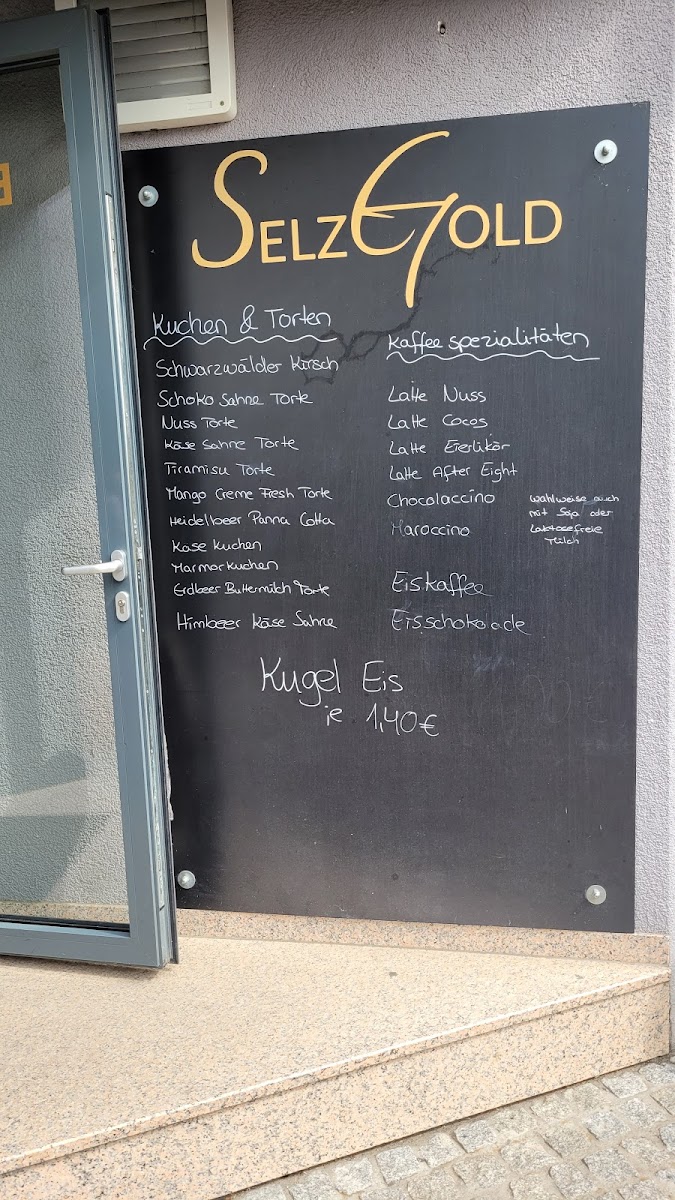 SELZGOLD
Kuchen & Torten
Schwarzwälder Kirsch
Schoko Sahne Torte
Nuss Torte
Käse Sahne Torte
Tiramisu Torte
Mango Creme Fresh Torte
Heidelbeer Panna Cotta
Käse Kuchen
Marmorkuchen
Erdbeer Buttermilch Torte
Himbeer Käse Sahne
Kaffee spezialitäten
Latte Nuss
Latte Cocos
Latte Eierlikör
Latte After Eight
Chocolaccino
Maroccino
wahlweise auch
mit Soja oder
Laktosefreie
Milch
Eiskaffee
Eisschokolade
Kugel Eis
je 1,40€